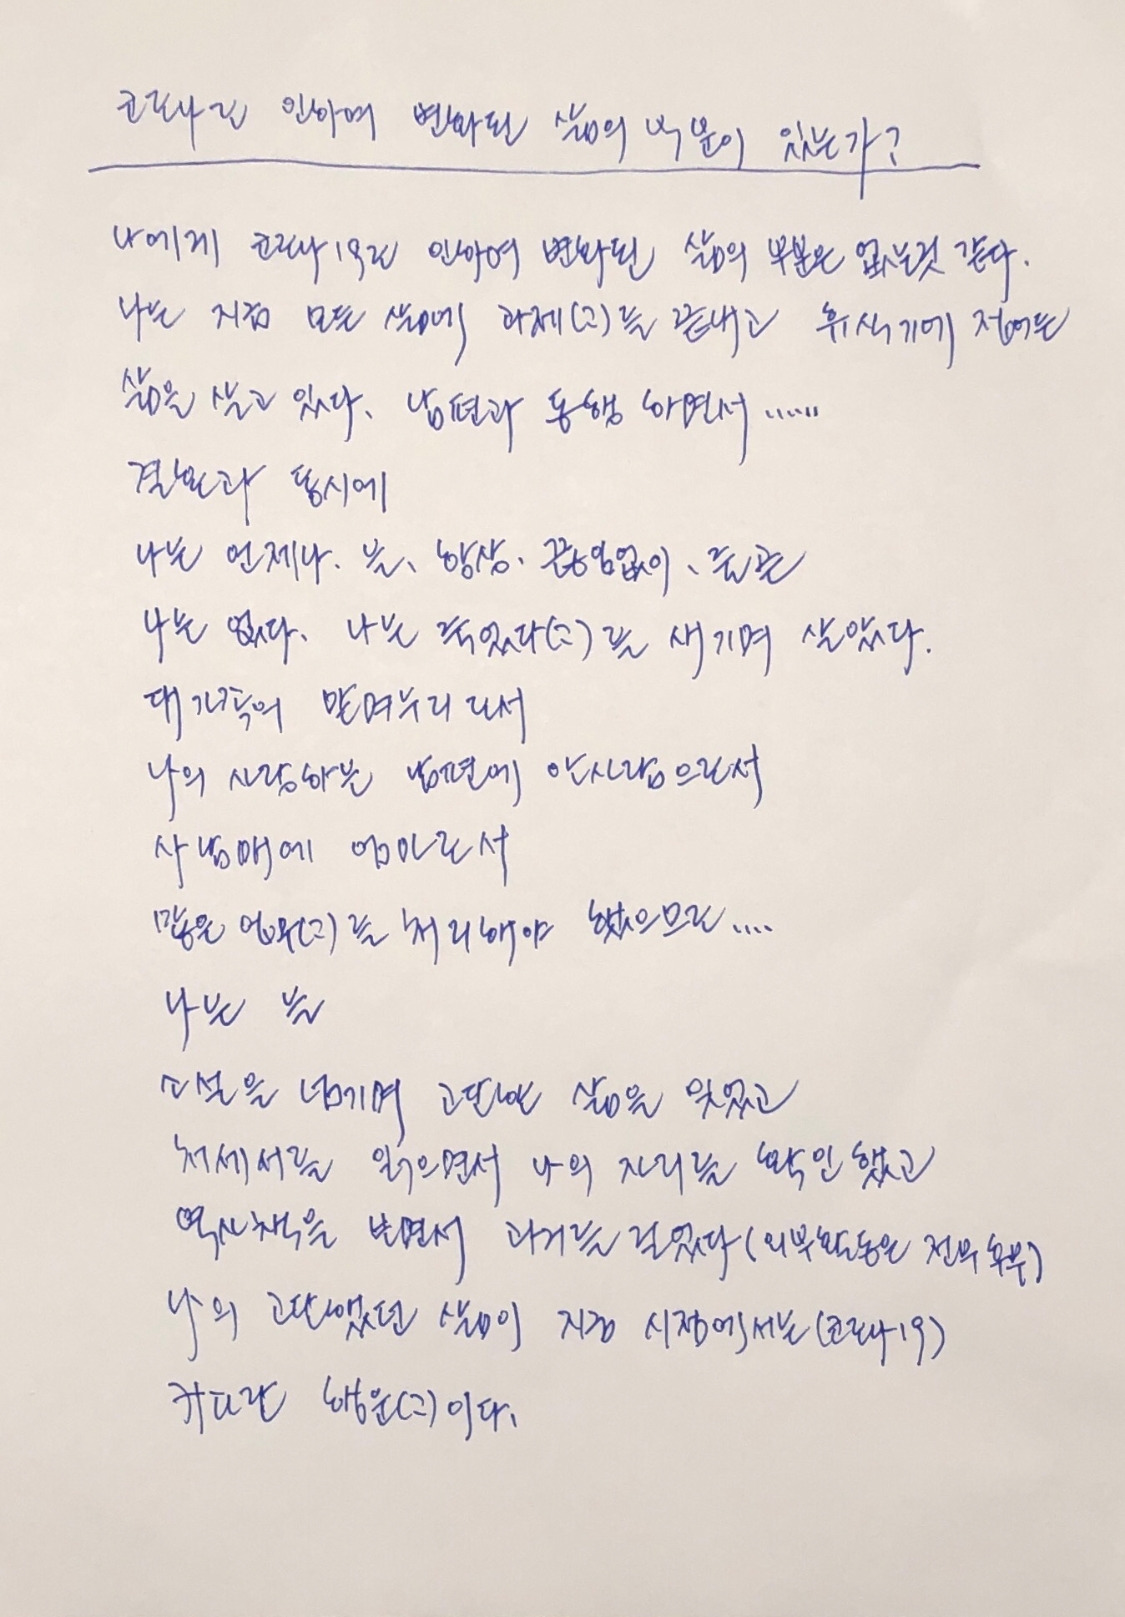 코로나로 인하여 변화된 삶의 부분이 있는가?
나에게 코로나19로 인하여 변화된 삶의 부분은 없는것 같다.
나는 지금 모든 삶에 과제(그)를 끝내고 휴식기에 접어든
삶을 살고 있다. 남편과 동행 하면서......
결혼과 동시에
나는 언제나. 늘, 항상. 끊임없이,
나는 없다. 나는 죽었다(그)를 새기며 살았다.
대가족의 맏며누리로서
나의 사랑하는 남편에 안사람으로서
사남매에 엄마로서
많은 업무(그)를 처리해야 했으므로....
나는 늘
소설을 넘기며 고단한 삶을 잊었고
처세서를 읽으면서 나의 자리를 확인했고
역사책을 보면서 과거를 걸었다(외부활동은 전무)
나의 고단했던 삶이 지금 시점에서는(코로나19)
커다란 행운(그)이다.